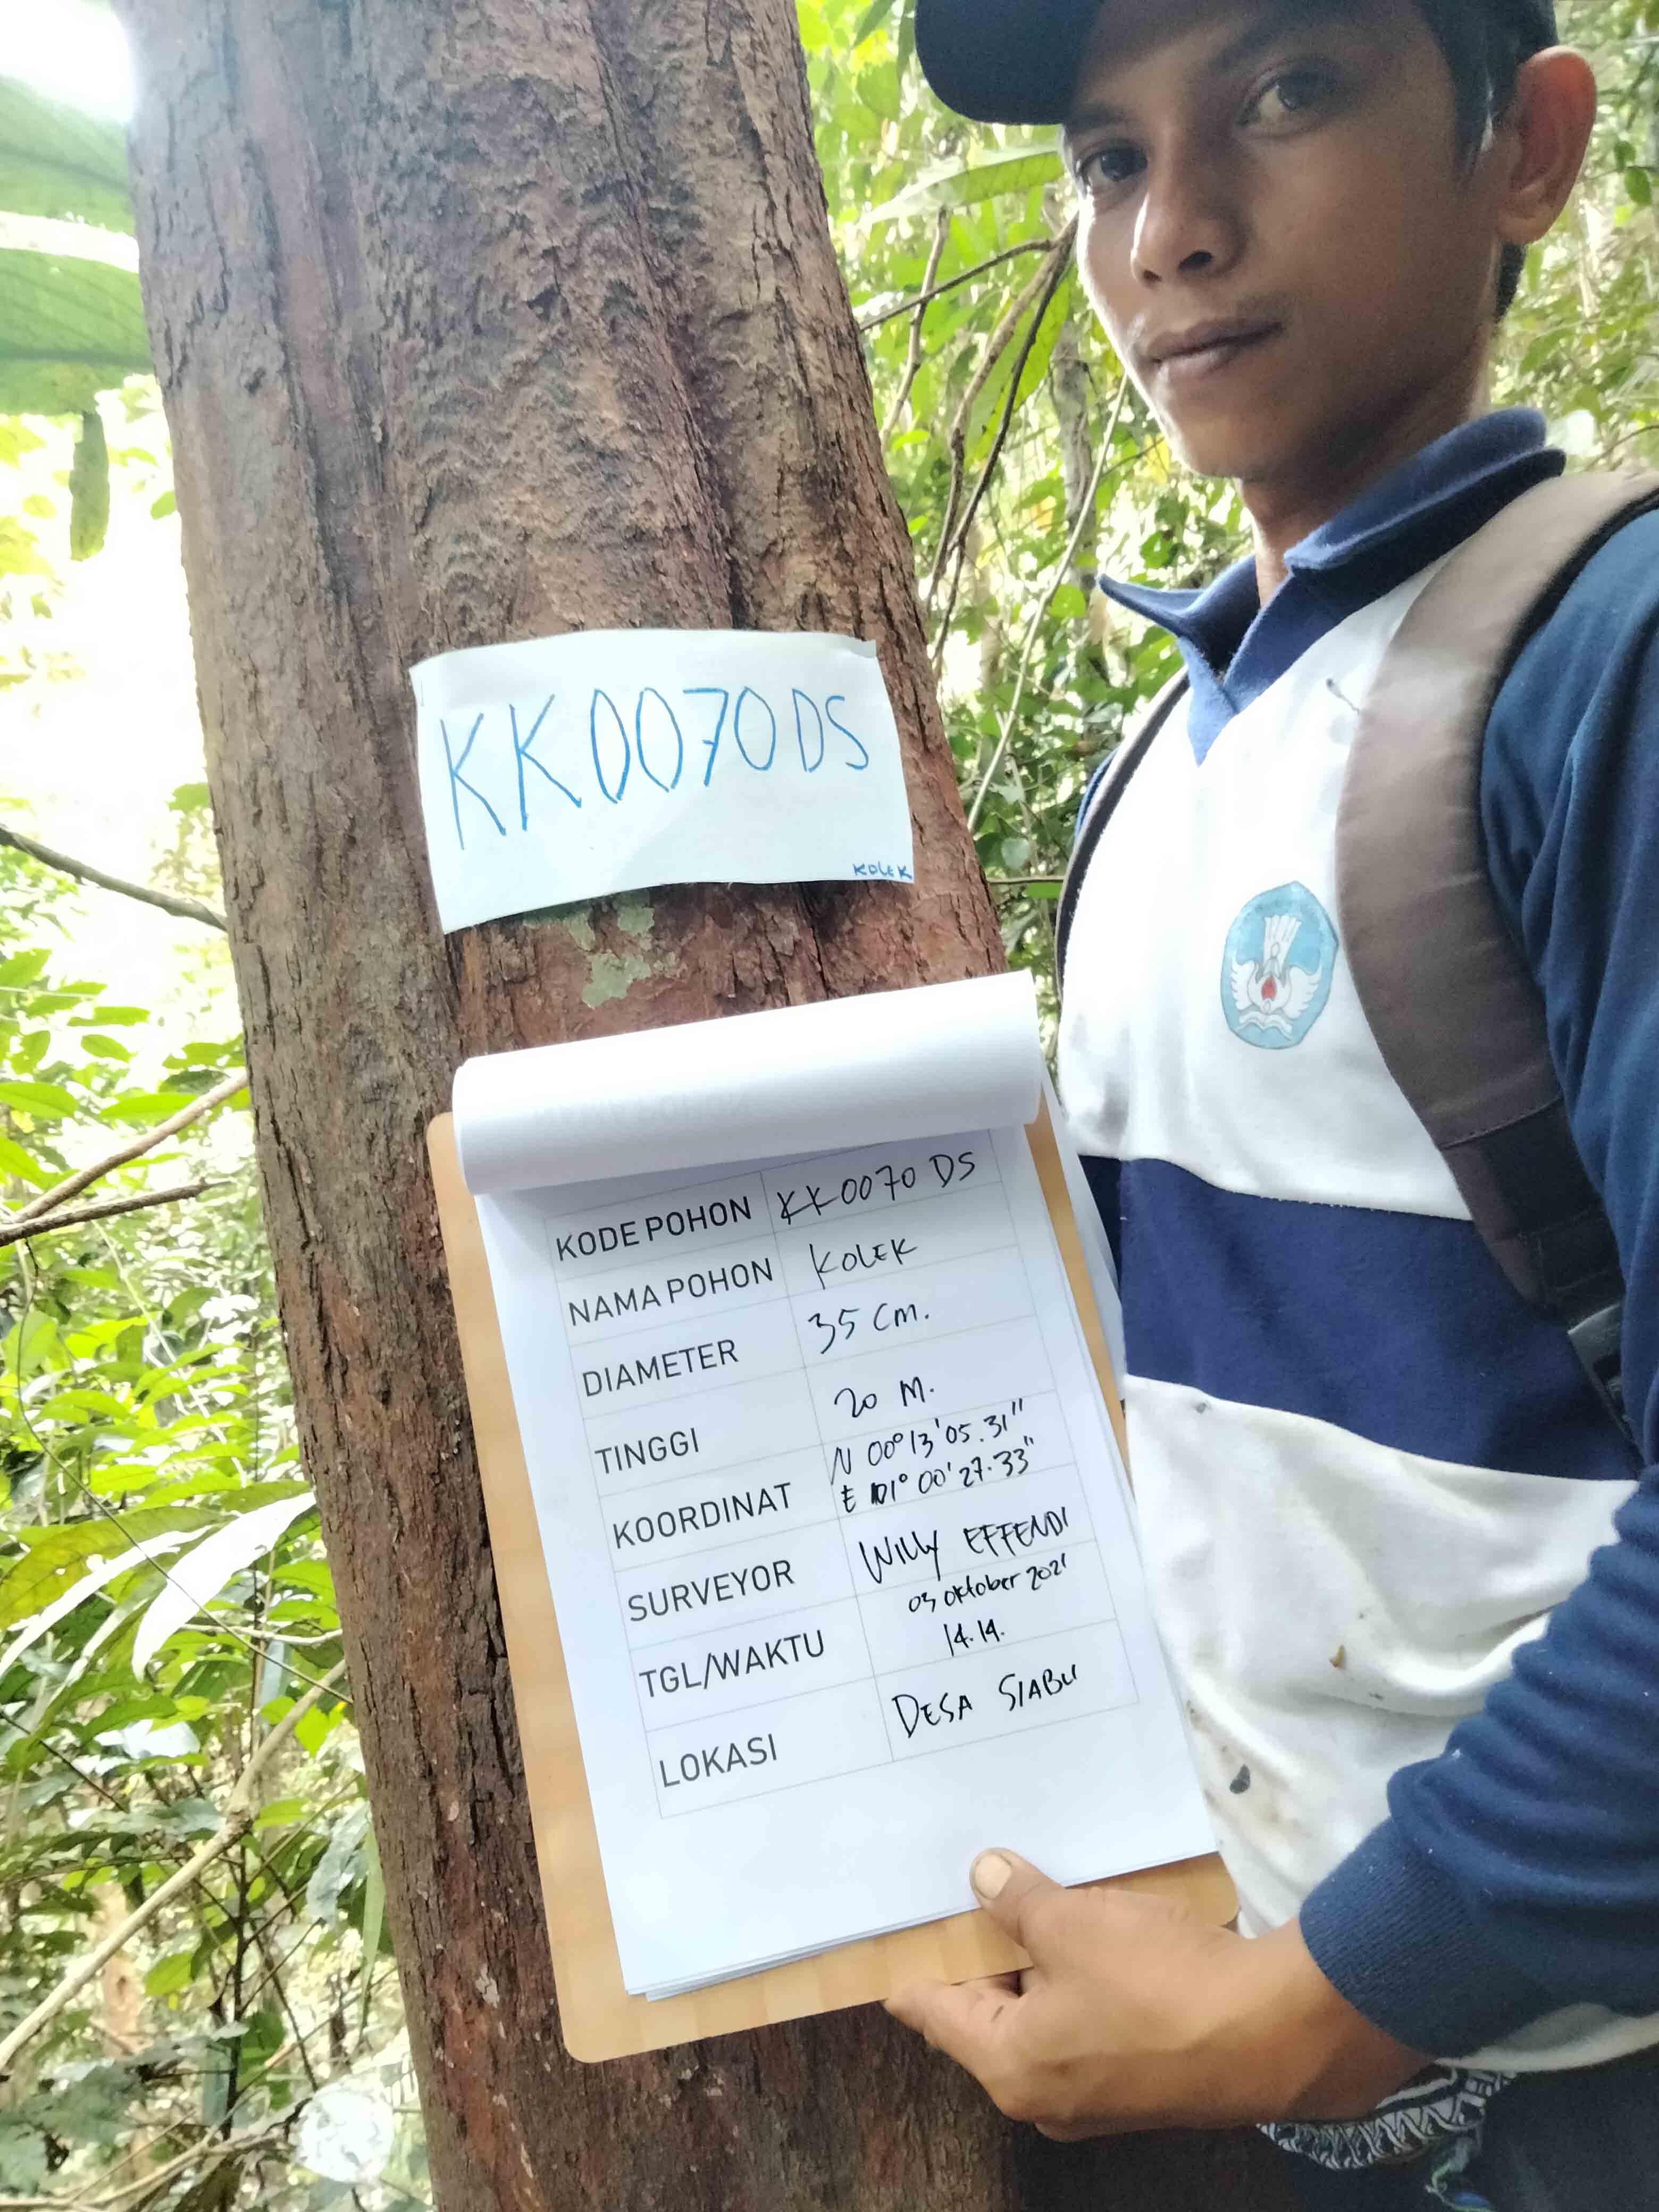 KK0070 DS
KOLEK
KODE POHON KK0070 DS
NAMA POHON KOLEK
DIAMETER 35 cm.
TINGGI 20 M.
KOORDINAT N 00° 13' 05.31"
E 101° 00' 27.33"
SURVEYOR WILLY EFFENDI
TGL/WAKTU 03 Oktober 2021
14.14.
LOKASI DESA SIABU